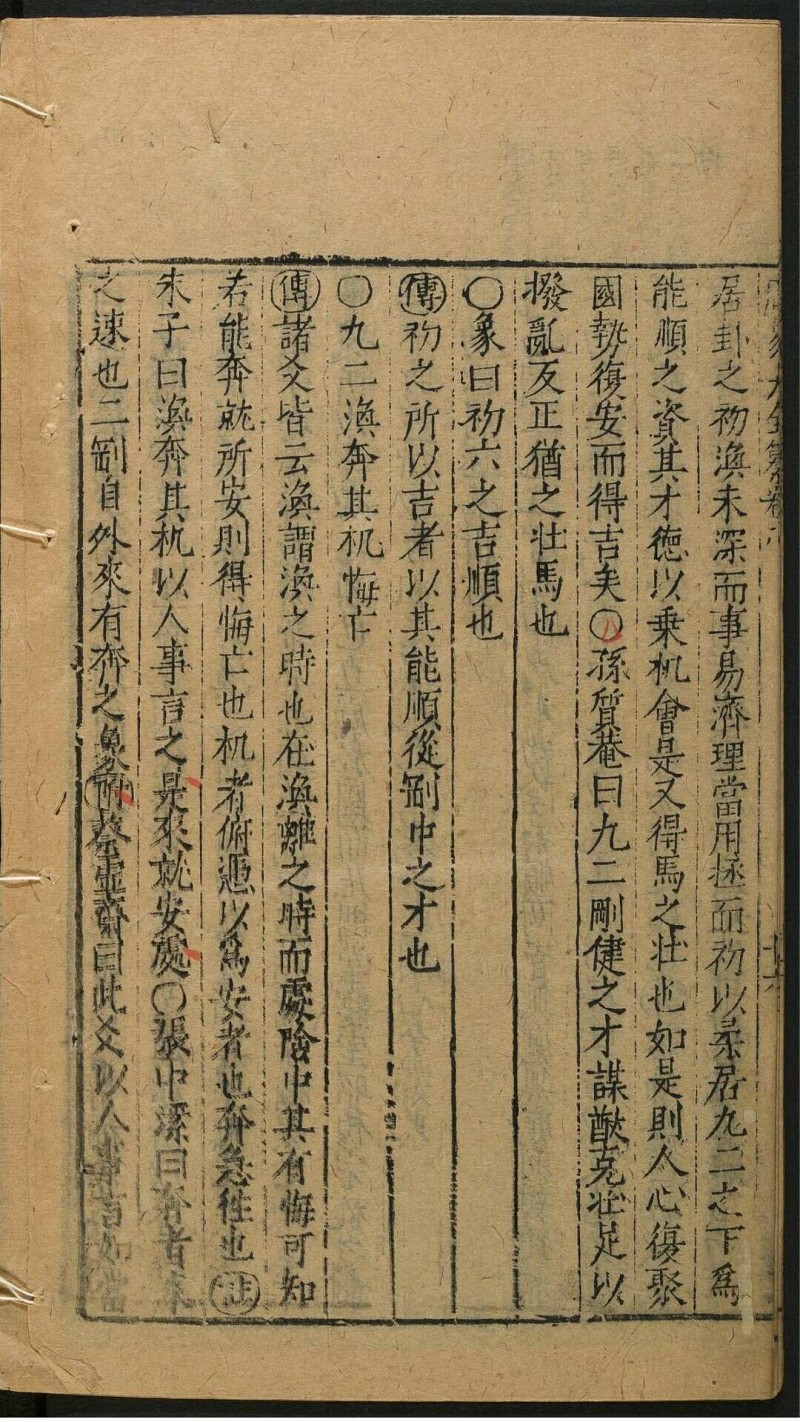 居卦之初渙未深而事易濟理當用拯而初以柔居九二之下爲
能順之資其才德以乗机會是又得馬之壯也如是則人心復聚
國勢復安而得吉矣〇孫質菴曰九二剛健之才謀猷克壯足以
撥亂反正猶之壯馬也
〇象曰初六之吉順也
傳初之所以吉者以其能順從剛中之才也
〇九二渙奔其机悔亡
傳諸爻皆云渙謂渙之時也在渙離之時而處險中其有悔可知
若能奔就所安則得悔亡也机者俯憑以爲安者也奔急往也註
朱子曰渙奔其机以人事言之是來就安處〇張中溪曰奔者來
之速也二剛自外來有奔之象附蔡虛齋曰此爻以人事言如當